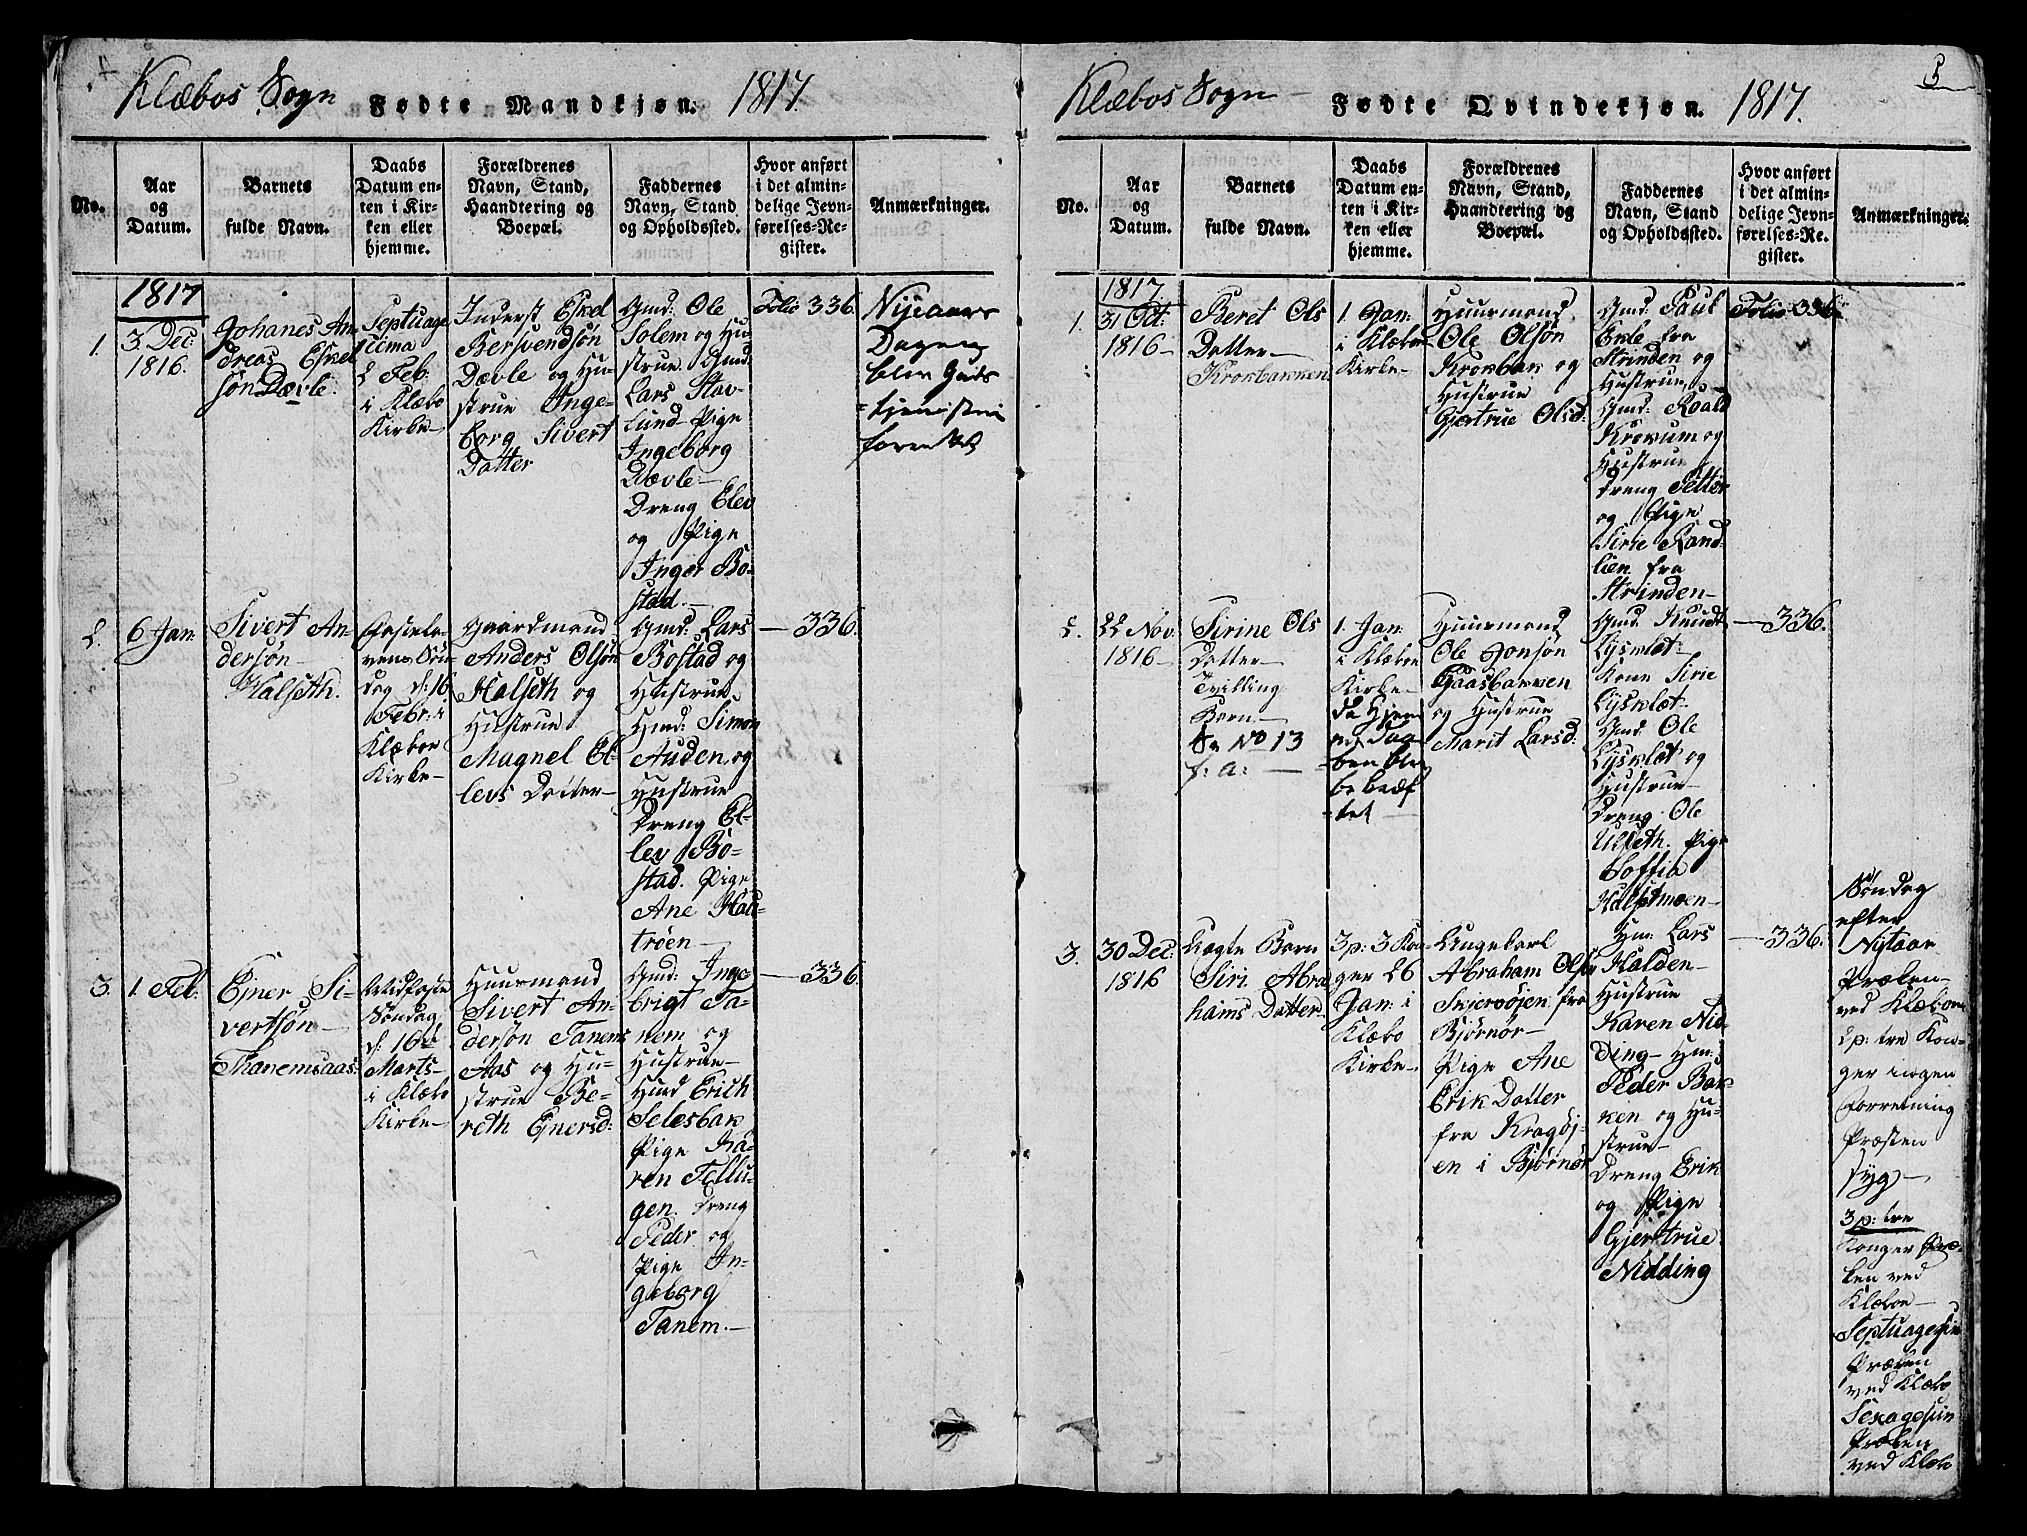 Klæbos Sogn
Fødte Mandkjøn.
1817.
No.
Aar
og
Datum.
Barnets
fulde Navn.
Daabs
Datum en-
ten i Kir-
ken eller
hjemme.
Forældrenes
Navn, Stand,
Haandtering og
Boepæl.
Faddernes
Navn, Stand
og Opholdssted.
Hvor anført
i det almin-
delige Jevn-
førelses-Re-
gister.
Anmærkninger.
1817
1.
3. Dec:
1816.
Johanes An
dreas Eskel
søn Dævle.
Septuage
sima
2 Feb:
i Klæbo
Kirke
Inderst Eskel
Bersvendsøn
Dævle og Hu-
strue Inge-
borg Sivert
Datter
Gmd: Ole
Solem og Hu-
strue. Gmd:
Lars Stav-
lund Pige
Ingeborg
Dævle
Dreng Elev
og Pige
Inger Bo-
stad.
Folio 336.
Nyeaars
Dagen
blev Guds
tjenisten
forrettet
2.
6 Jan:
Sivert An-
dersøn
Halseth.
Fastela-
vens Søn-
dag d: 16
Febr: i
Klæboe
Kirke
Gaardmand
Anders Olsøn
Halseth og
Hustrue
Magnel El-
levs Datter
Gmd: Lars
Bostad og
Hustrue
Gmd: Simon
Auden og
Hustrue
Dreng El-
lev Bo-
stad. Pige
Ane Hau-
trøen
336.
3.
1. Feb:
Ejner Si-
vertsøn
Thanemsaas:
Midfaste
Søndag
d: 16de
Marts
i Klæbo
Kirke
Huusmand
Sivert An-
dersøn Tanems
Aas og Hu-
strue Be-
reth Ejnersd:
Gmd: Inge
brigt Ta-
nem og
Hustrue
Hmd Erich
Selesbak
Pige Ka-
ren Tellu-
gen. Dreng
Peder og
Pige In-
geborg
Tanem.
336.
5
Klæbos Sogn
Fødte Qvindekjøn.
1817.
No.
Aar
og
Datum.
Barnets
fulde Navn.
Daabs
Datum en-
ten i Kir-
ken eller
hjemme.
Forældrenes
Navn, Stand,
Haandtering og
Boepæl.
Faddernes
Navn, Stand
og Opholdssted.
Hvor anført
i det almin-
delige Jevn-
førelses-Re-
gister.
Anmærkninger.
1817
1.
31 Oct:
1816
Beret Ols
Datter
Krokbakken
1. Jan:
i Klæboe
Kirke
Huusmand
Ole Olsøn
Krokbak og
Hustrue
Gjertrue Olsd:
Gmd: Paul
fra
Strinden og
Hustrue
Gmd: Roald
Krokum og
Hustrue
Dreng Petter
og Pige
Sirie Rand-
lien fra
Strinden
Folio 336.
2.
22 Nov:
1816
Sirine Ols
Datter
Tvilling
Barn
No 13
f: a:
1. Jan:
i Klæboe
Kirke
da Hjem
me Daa
ben blev
bekræf
tet
Huusmand
Ole Jonsøn
Gaasbakken
og Hustrue
Marit Larsd:
Gmd: Knudt
Lysklæt
Kone Sirie
Lysklæt
Gmd: Ole
Lysklæt og
Hustrue
Dreng Ole
Ulseth. Pige
Soffia
Halsetmoen
336.
3.
30 Dec:
1816
Uægte Barn
Siri Abra
hams Datter
3p: 3 Kon-
ger 26
Jan: i
Klæbo
Kirke
Ungekarl
Abraham Olsøn
Skjervøjen fra
Bjørnør
Pige Ane
Erik Datter
fra Kragøj-
en i Bjørnør
Hm: Lars
Halden
Hustrue
Karen Nid
ding Hm:
Peder Bak
ken og Hu-
strue
Dreng Erik
og Pige
Gjertrue
Nidding
336.
Søndag
efter
Nytaar
Præken
ved Klæboe
2 p: tre Kon-
ger ingen
Forretning
Præsten
syg
3 p: tre
Konger Præ-
ken ved
Klæboe
Septuagesim
Præken
ved Klæbo
Sexagesim
Præken
ved Klæbo